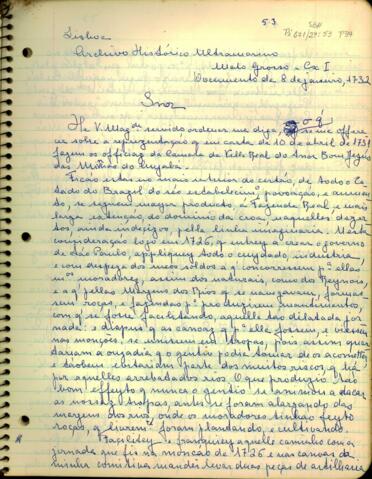 53
Lisboa
Archivo Histórico Ultramarino
Mato Grosso - Cx I
Documento de 8 de janeiro, 1732
Snor
He V. Mag.de servido ordenar me diga, o q̃ se me offere
ce sobre a reprezentação q̃ em carta de 10 de abril de 1731
fazem os officiaes da Camara da Villa Real do Snor Bom Jezus
das Minas do Cuyabá.
Ficão estas no mais interior do certão, de todo o Es
tado do Brazil do
se seguirem mayor producto, á Fazenda Real, e mais
larga extenção do dominio da croa, naquelles dezer
tos, ainda indecizos, pella linha imaginaria. Nesta
consideração logo em 1726, q̃ entrey a crear o governo
de São Paulo, appliquey todo o cuydado, industria,
e com despeza dos meos soldos a q̃ concorressem p.ª ellas
mais moradores, assim dos naturaes, como do Reyno,
e a q̃ pellas margens dos Rios q̃ se navegavam, formas
sem roças, e fazendas p.ª produzirem mantimentos,
com q̃ se fosse facilitando, aquella tão dilatada jor
nada: e dispuz q̃ as canoas q̃ p.ª ella fossem, e viessem
nas monções, se unissem em tropas, pois assim quar
tariam a ouzadia q̃ o gentio podia tomar de os acometter,
e tãobem evitariam parte dos muitos riscos, q̃ há
por aquelles arrebatados rios. O que produziu tão
bom effeyto q̃ nunca o gentio se animou a dar
as nossas tropas, antes se foram alargando das
margens dos rios, onde os moradores tinhão feyto
roças, q̃ livrem.te foram plantando, e cultivando.
Facilitey e franquiey aquelle caminho com a
jornada que fis na monção de 1726 e nas canoas da
minha comitiva mandey levar duas peças de artilharia